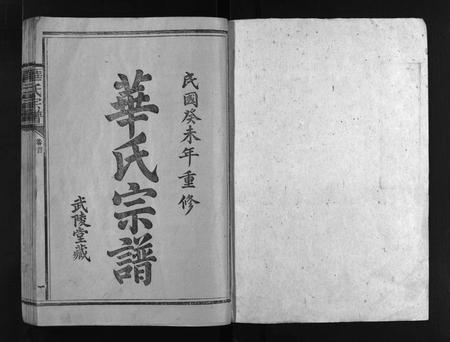 民國癸未年重修
華氏宗譜
武陵堂藏
華氏宗譜
卷首